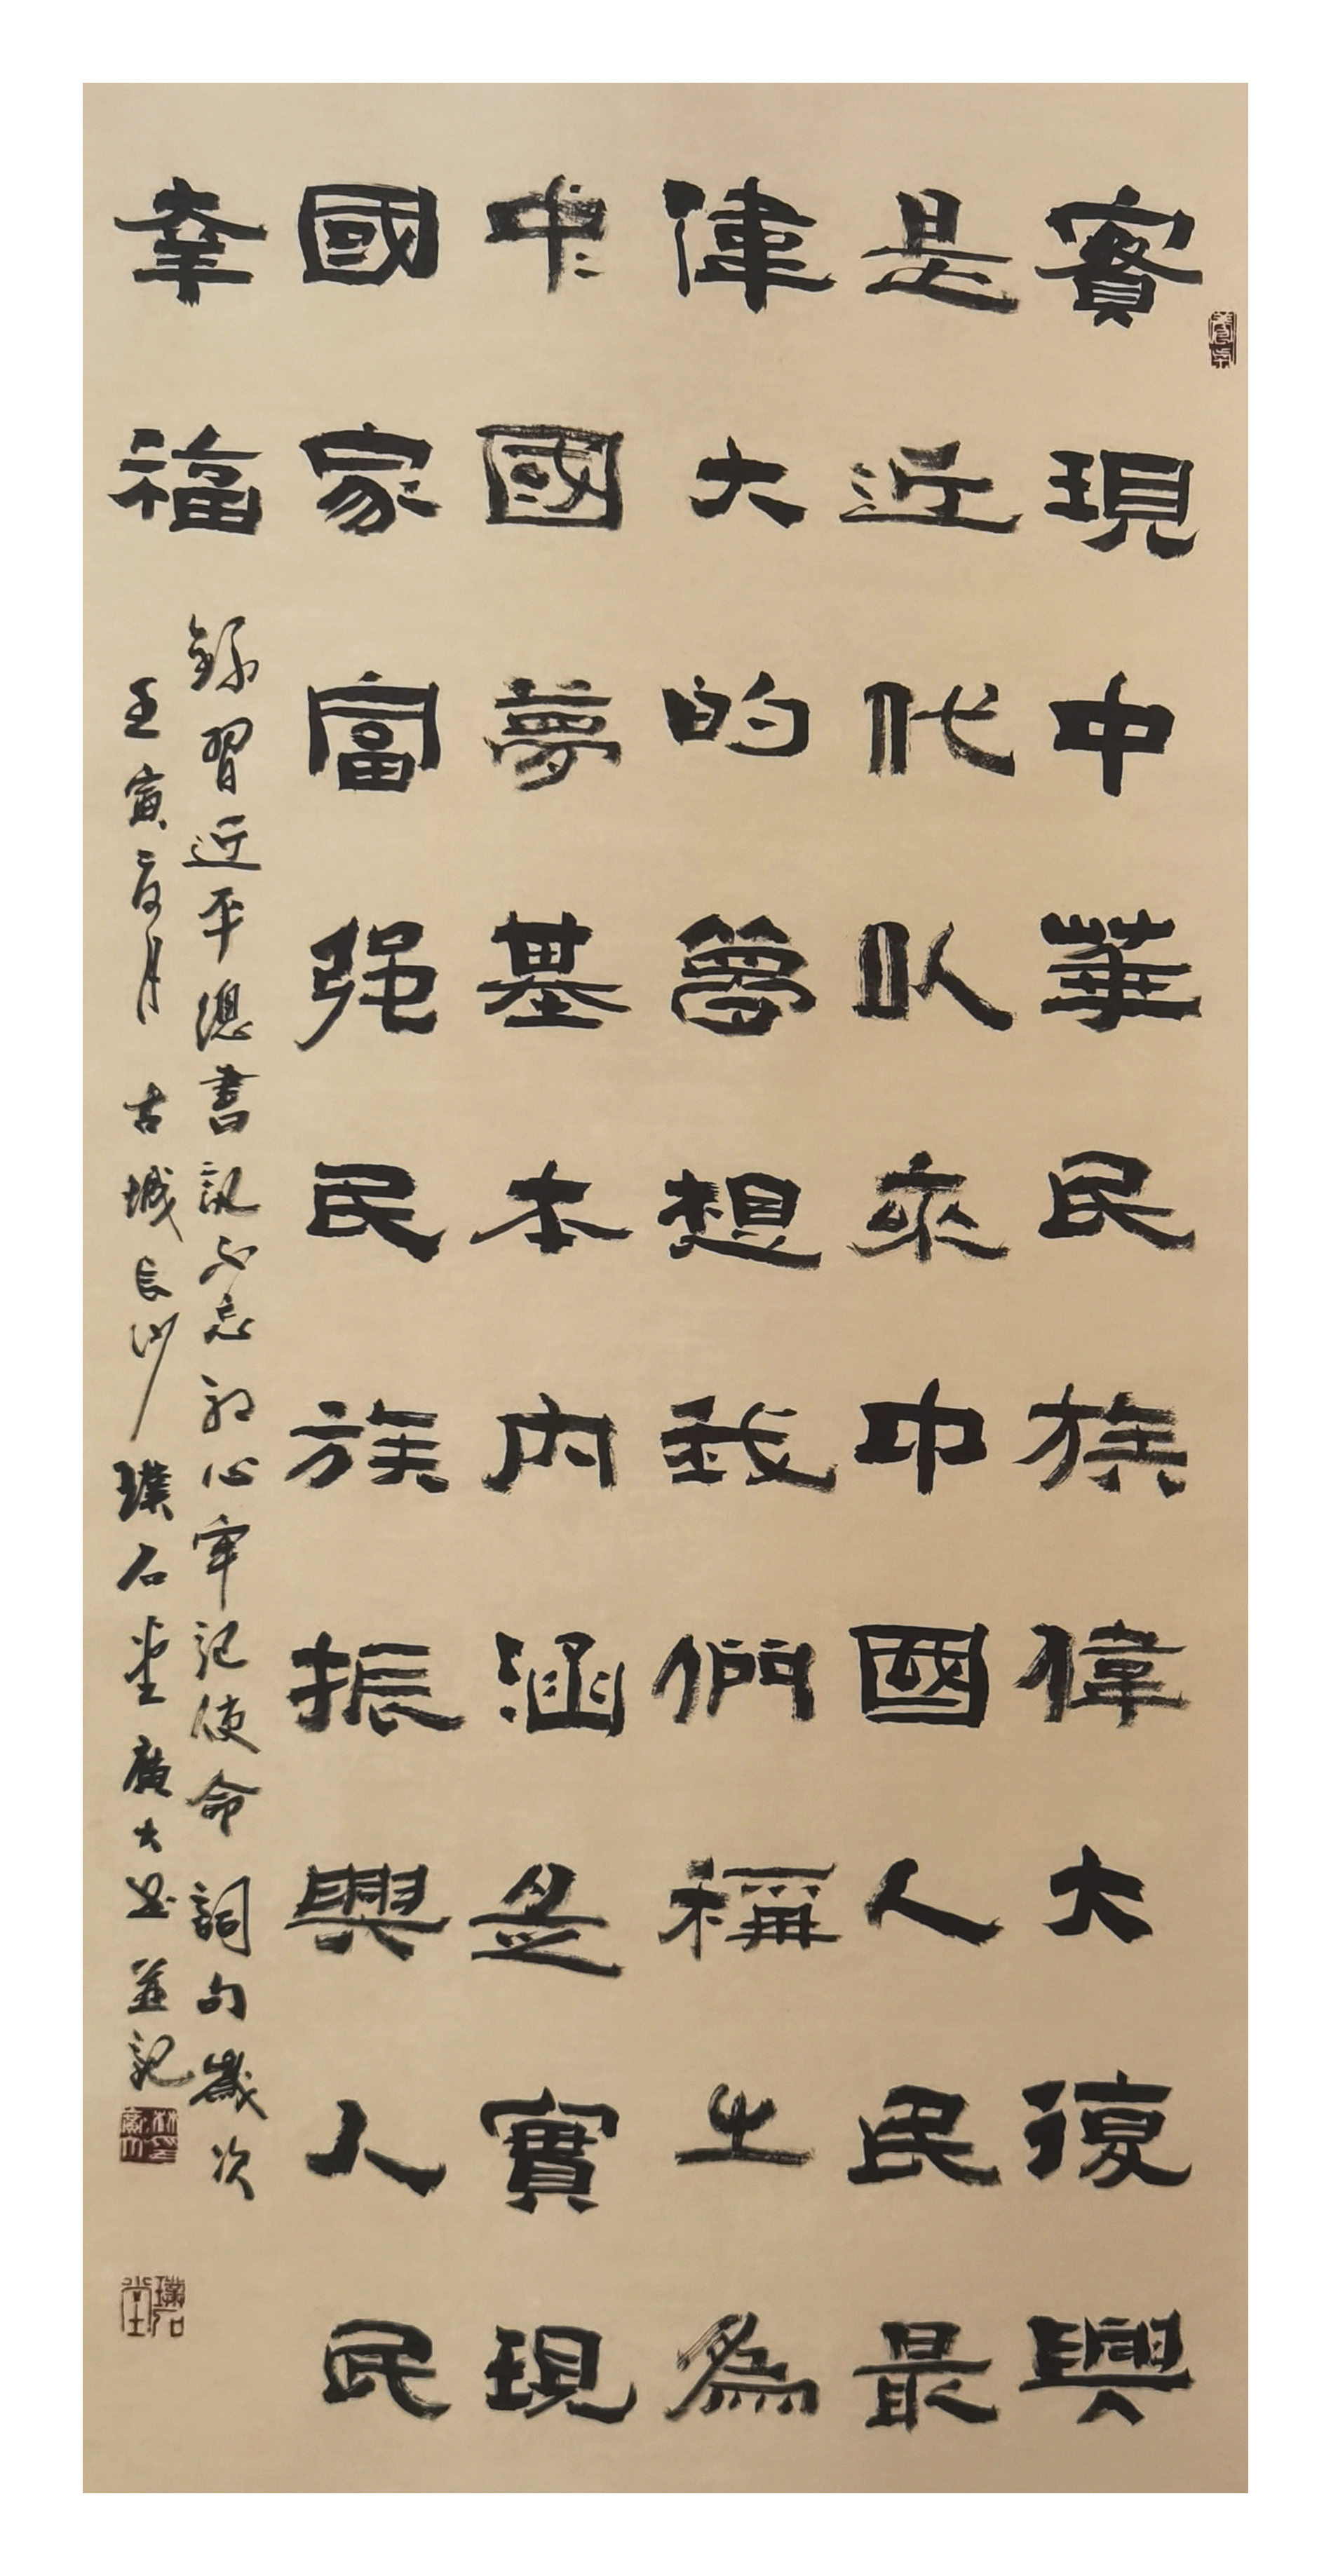 實現中華民族偉大復興
是近代以來中國人民最
偉大的夢想我們稱之為
中國夢基本內涵是實現
國家富强民族振興人民
幸福
錄習近平總書記不忘初心牢記使命詞句歲次
壬寅二月古城長沙璞石堂廣大書並記
璞石堂